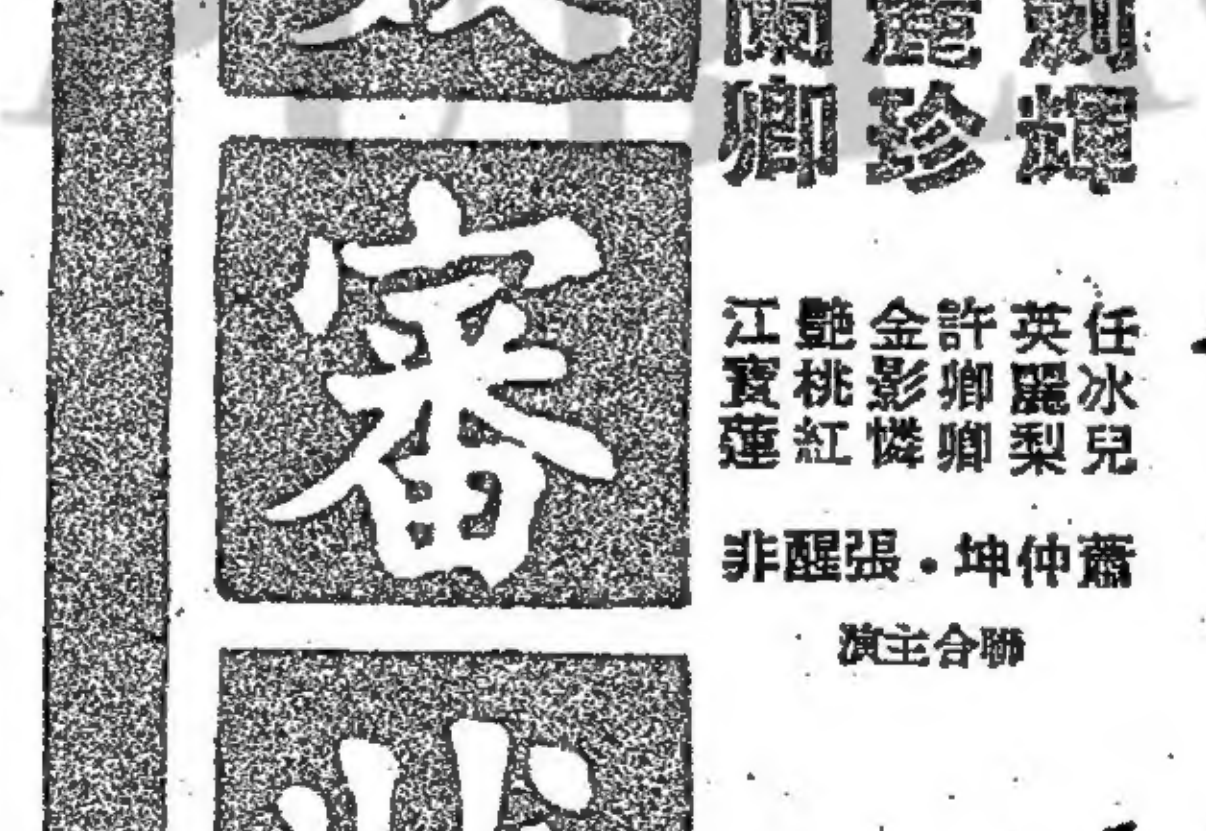 輝
麗珍
蘭卿
任冰兒
英麗梨
許卿卿
金影憐
艷桃紅
江寶蓮
蕭仲坤・張醒非
聯合主演
審